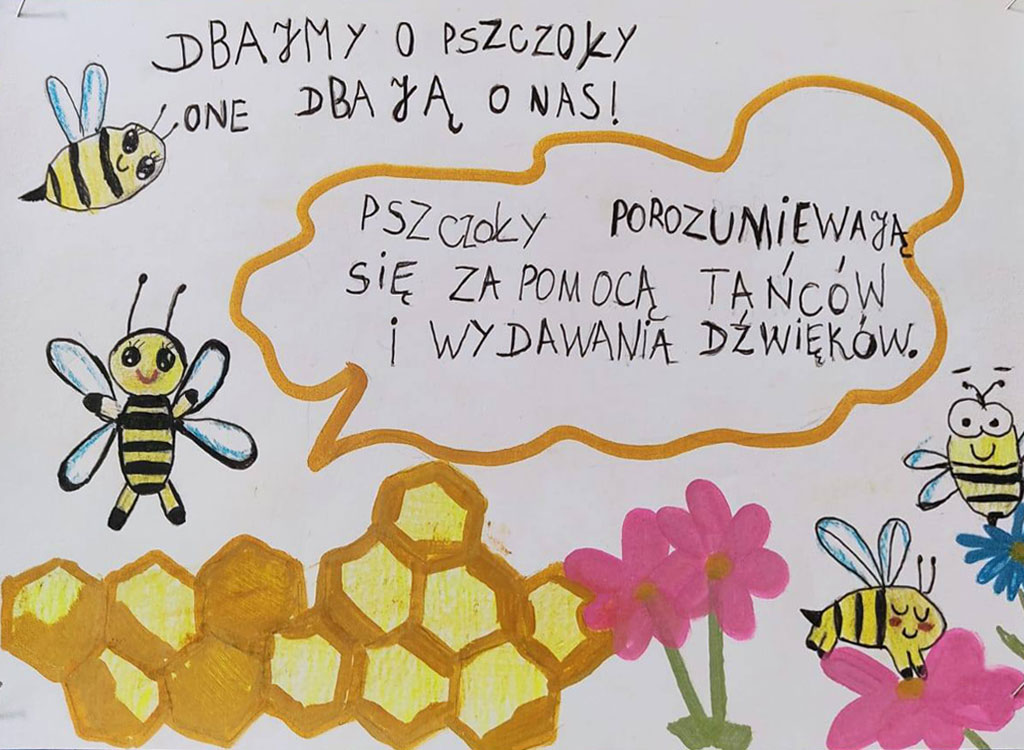 DBAJMY O PSZCZOŁY
ONE DBAJĄ O NAS!
PSZCZOŁY POROZUMIEWAJĄ
SIĘ ZA POMOCĄ TAŃCÓW
I WYDAWANIĄ DŹWIĘKÓW.